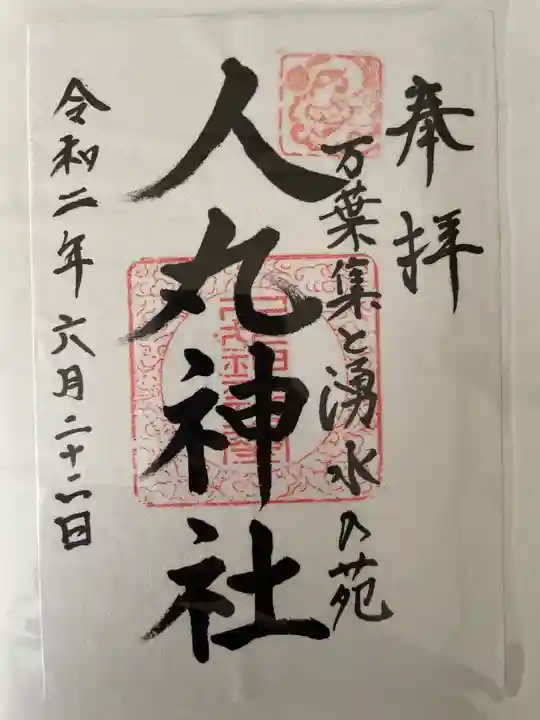 奉拝
万葉集と湧水の苑
人丸神社
令和二年六月二十六日